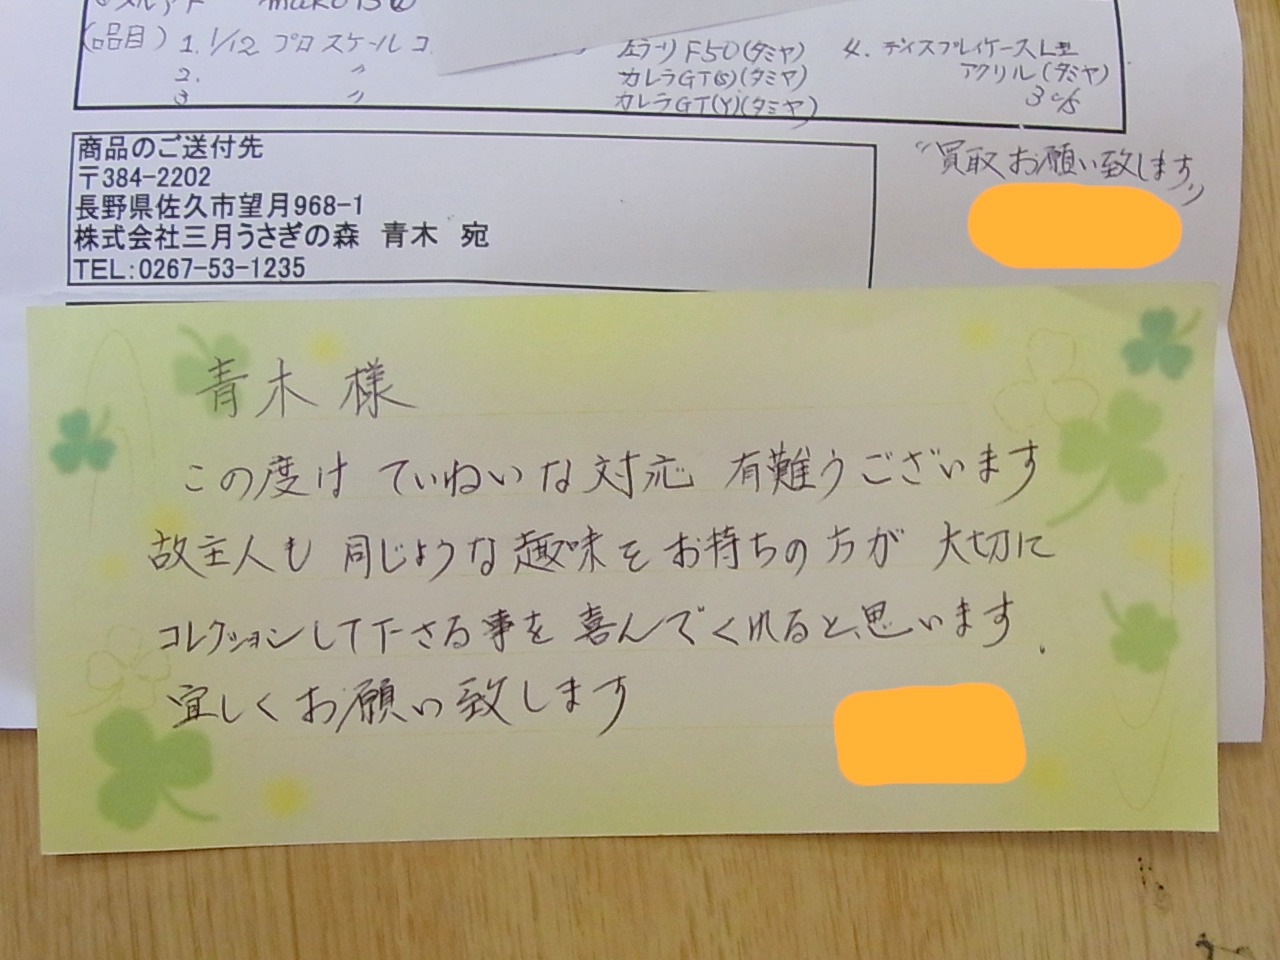 (品目) 1. 1/12 プロスケールコ
F50(タミヤ) 4. ディスプレイケースL型
2. 〃 カレラGT(S)(タミヤ) アクリル(タミヤ)
3 〃 カレラGT(Y)(タミヤ) 3c/s
商品のご送付先
〒384-2202
長野県佐久市望月968-1
株式会社三月うさぎの森 青木 宛
TEL:0267-53-1235
“買取お願い致します„
青木 様
この度は ていねいな対応 有難うございます
故主人も 同じような趣味をお持ちの方が 大切に
コレクションして下さる事を 喜んでくれると思います.
宜しくお願い致します